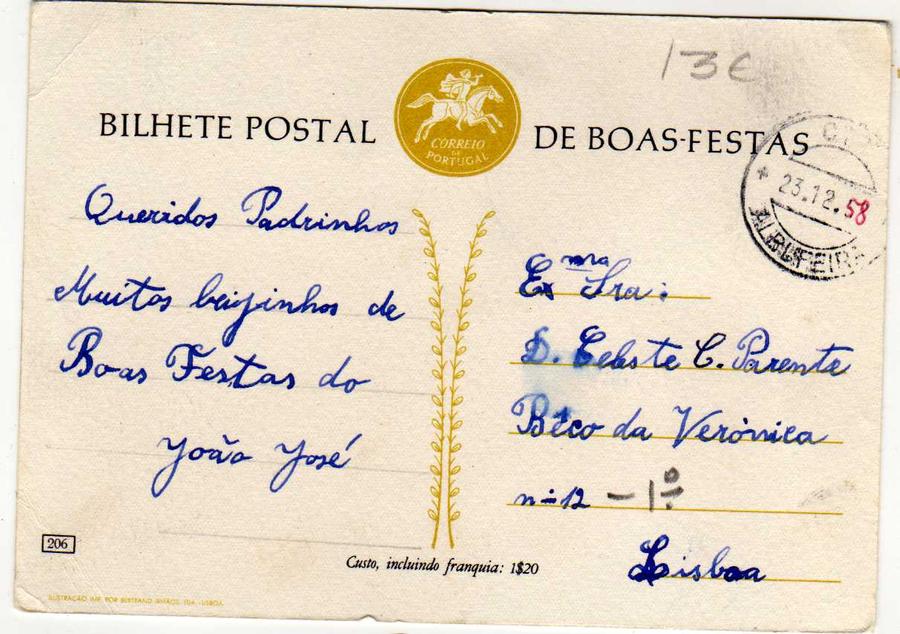 130
BILHETE POSTAL DE BOAS-FESTAS
CORREIO
DE
PORTUGAL
23.12.58
ALBUFEIRA
Queridos Padrinhos
Muitos beijinhos de
Boas Festas do
João José
Exma Sra:
D. Celeste C. Parente
Beco da Verónica
nº 12 - 1º
Lisboa
206
Custo, incluindo franquia: 1$20
ILUSTRAÇÃO IMP. POR BERTRAND IRMÃOS, LDA. - LISBOA